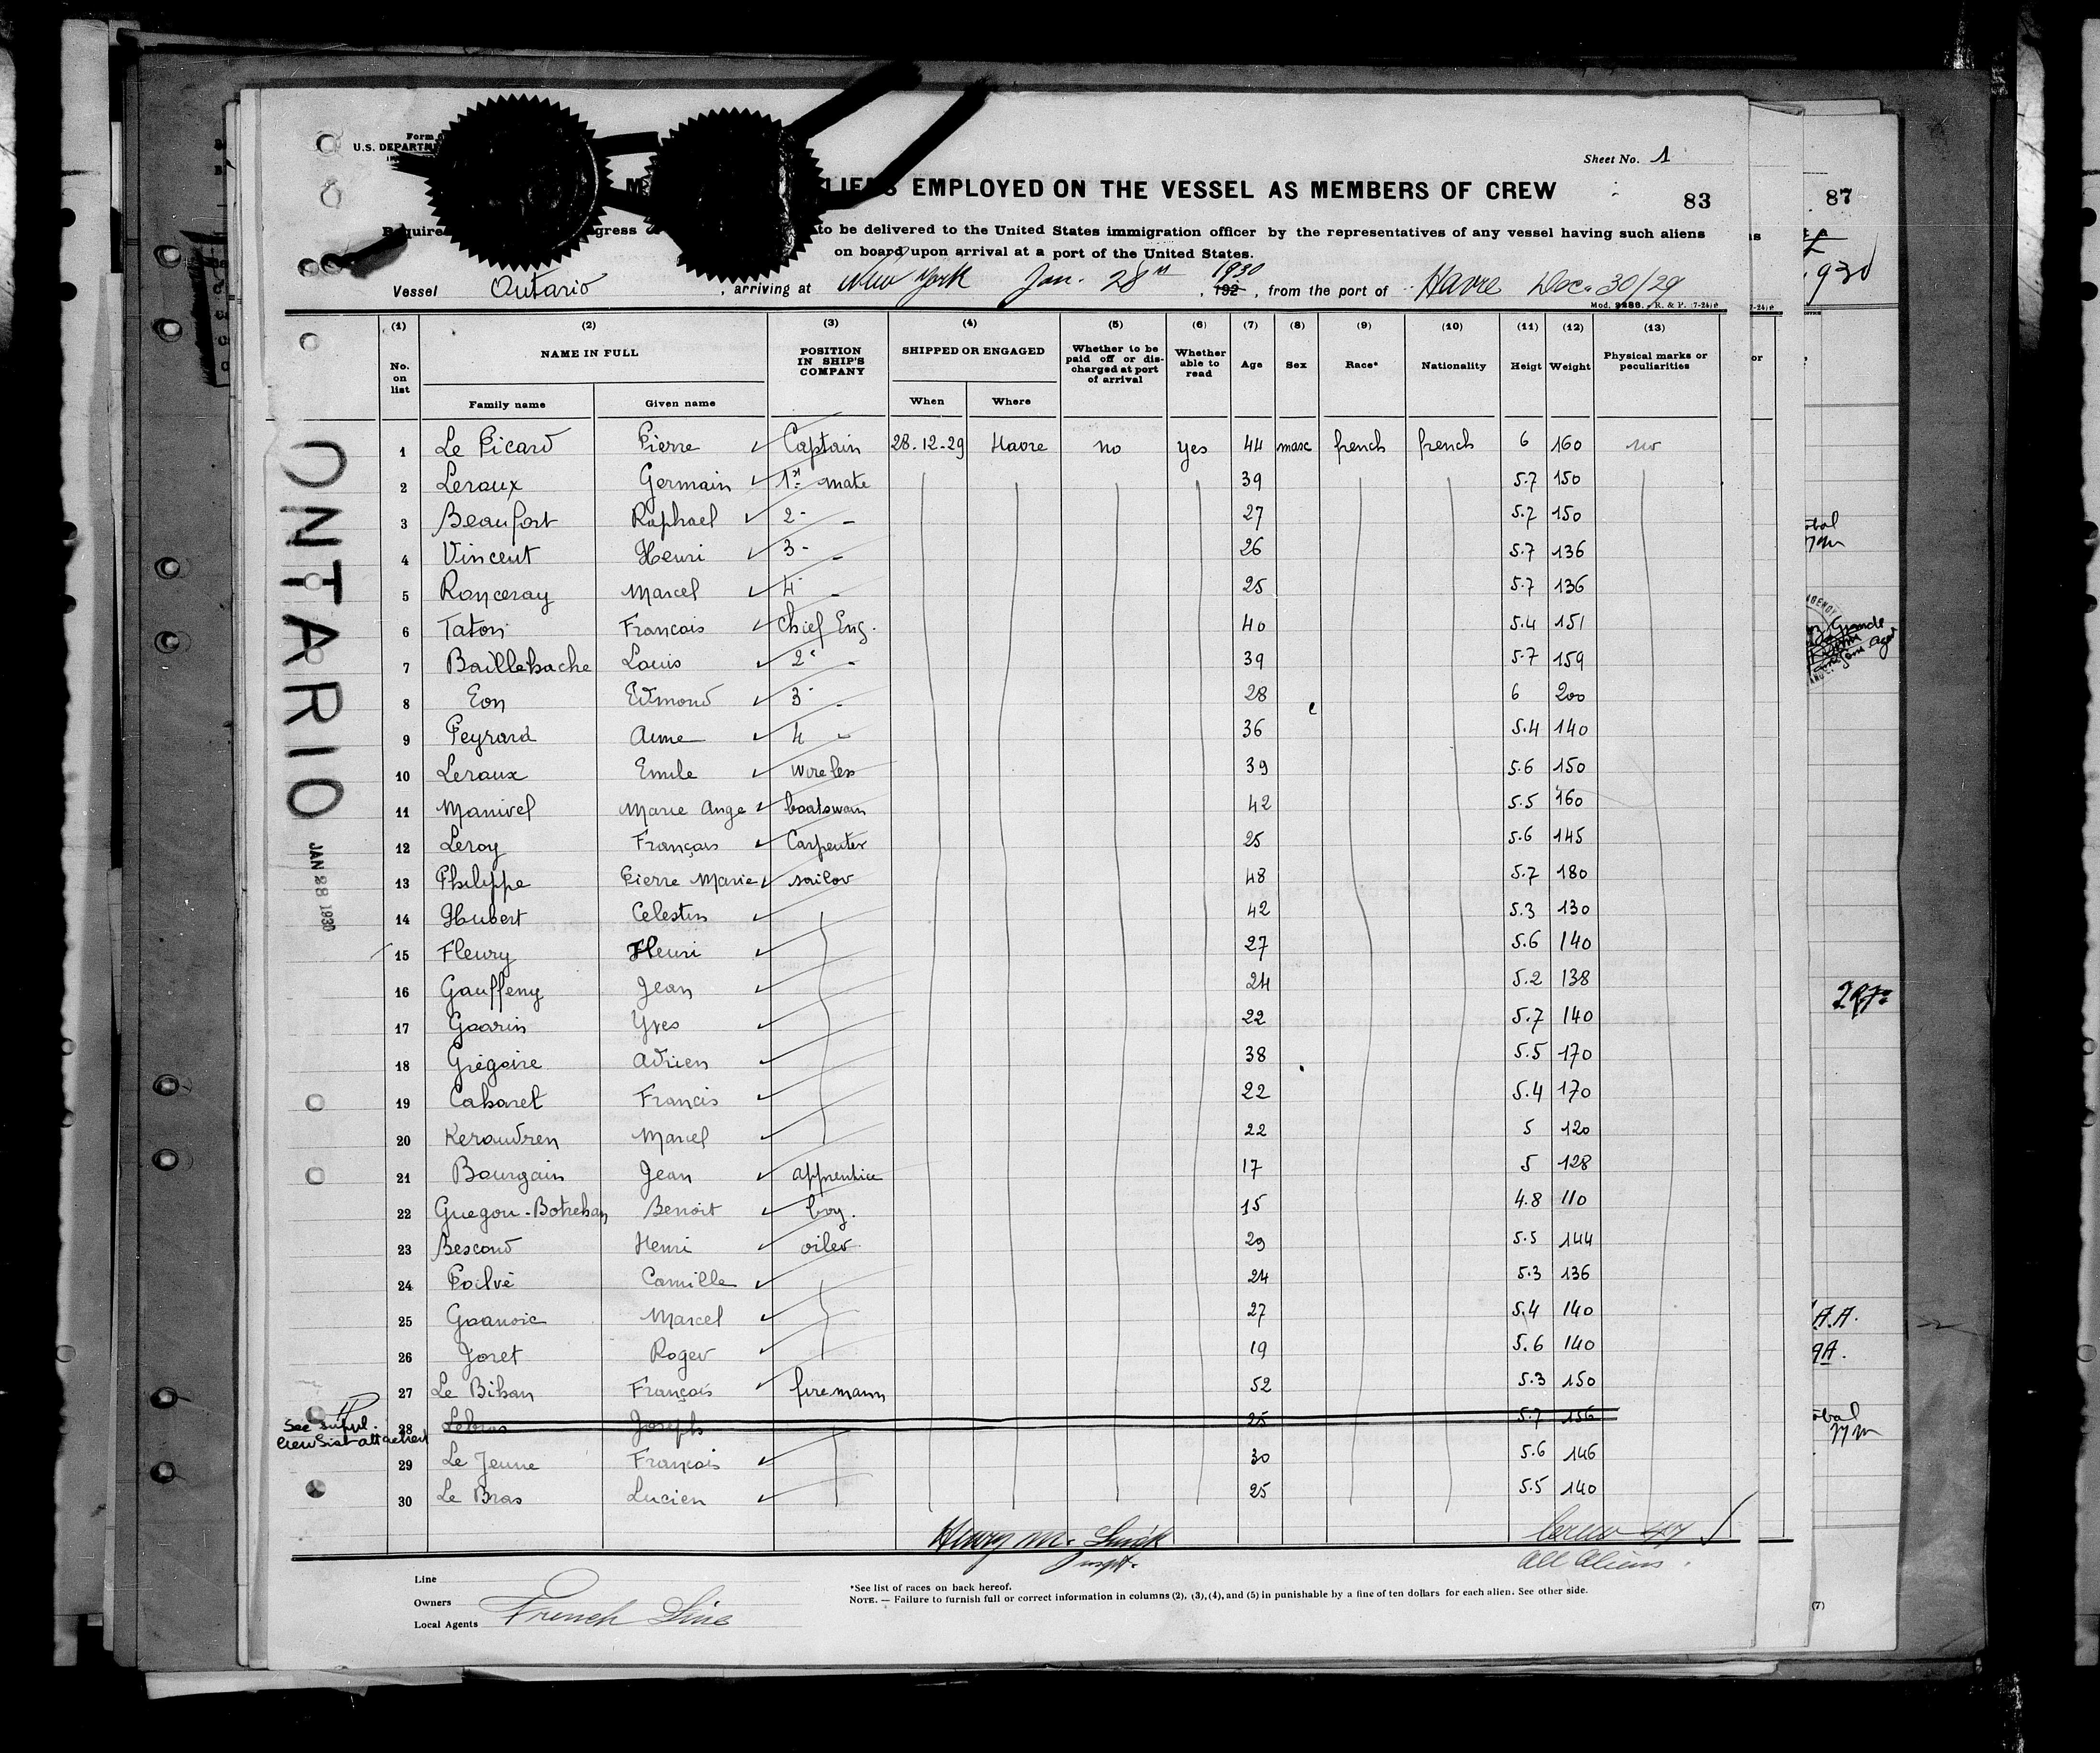 Form
U.S. DEPARTM
Sheet No. 1
LIENS EMPLOYED ON THE VESSEL AS MEMBERS OF CREW
83
87
Require gress to be delivered to the United States immigration officer by the representatives of any vessel having such aliens
on board upon arrival at a port of the United States.
Vessel Ontario, arriving at New York Jan. 28th 1930, 192, from the port of Havre Dec. 30/29
Mod. R. & P. 7-24
(1) (2) (3) (4) (5) (6) (7) (8) (9) (10) (11) (12) (13)
No. on list NAME IN FULL POSITION IN SHIP'S COMPANY SHIPPED OR ENGAGED Whether to be paid off or discharged at port of arrival Whether able to read Age Sex Race* Nationality Heigt Weight Physical marks or peculiarities
Family name Given name When Where
1 Le Picard Pierre Captain 28.12.29 Havre no yes 44 masc french french 6 160 no
2 Leraux Germain 1st mate 39 5.7 150
3 Beaufort Raphael 2 - 27 5.7 150
4 Vincent Henri 3 - 26 5.7 136
5 Ronceray Marcel 4 - 25 5.7 136
6 Taton Francois Chief Eng. 40 5.4 151
7 Baillehache Louis 2 - 39 5.7 159
8 Eon Edmond 3 - 28 6 200
9 Peyrard Aime 4 - 36 5.4 140
10 Leraux Emile wireless 39 5.6 150
11 Manivel Marie Ange boatswain 42 5.5 160
12 Leroy François Carpenter 25 5.6 145
13 Philippe Pierre Marie sailor 48 5.7 180
14 Hubert Celestin 42 5.3 130
15 Fleury Henri 27 5.6 140
16 Gauffeny Jean 24 5.2 138
17 Goarin Yves 22 5.7 140
18 Grégoire Adrien 38 5.5 170
19 Cabaret Francis 22 5.4 170
20 Keraudren Marcel 22 5 120
21 Bourgain Jean apprentice 17 5 128
22 Guegou-Botrehan Benoit boy. 15 4.8 110
23 Bescond Henri oiler 29 5.5 144
24 Poilvé Camille 24 5.3 136
25 Goanvic Marcel 27 5.4 140
26 Joret Roger 19 5.6 140
27 Le Bihan François firemann 52 5.3 150
See suppl.
Crew List attached
28 Lebras Joseph 25 5.7 156
29 Le Jeune François 30 5.6 146
30 Le Bras Lucien 25 5.5 140
ONTARIO
JAN 28 1930
Henry M.
Inspt.
Crew 47
All Aliens.
Line
Owners
Local Agents French Line
*See list of races on back hereof.
NOTE. — Failure to furnish full or correct information in columns (2), (3), (4), and (5) in punishable by a fine of ten dollars for each alien. See other side.
1930
A.A.
(7)